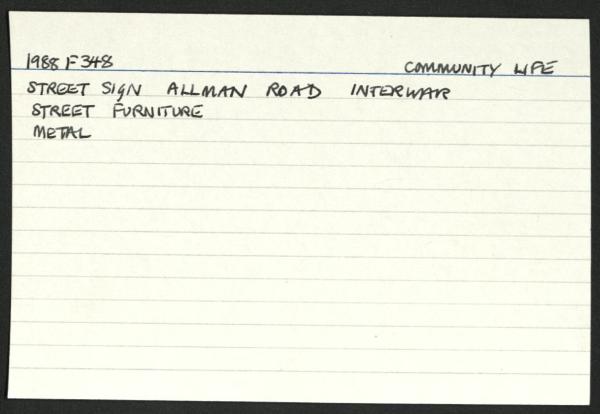 1988 F 348 COMMUNITY LIFE
STREET SIGN ALLMAN ROAD INTERWAR
STREET FURNITURE
METAL